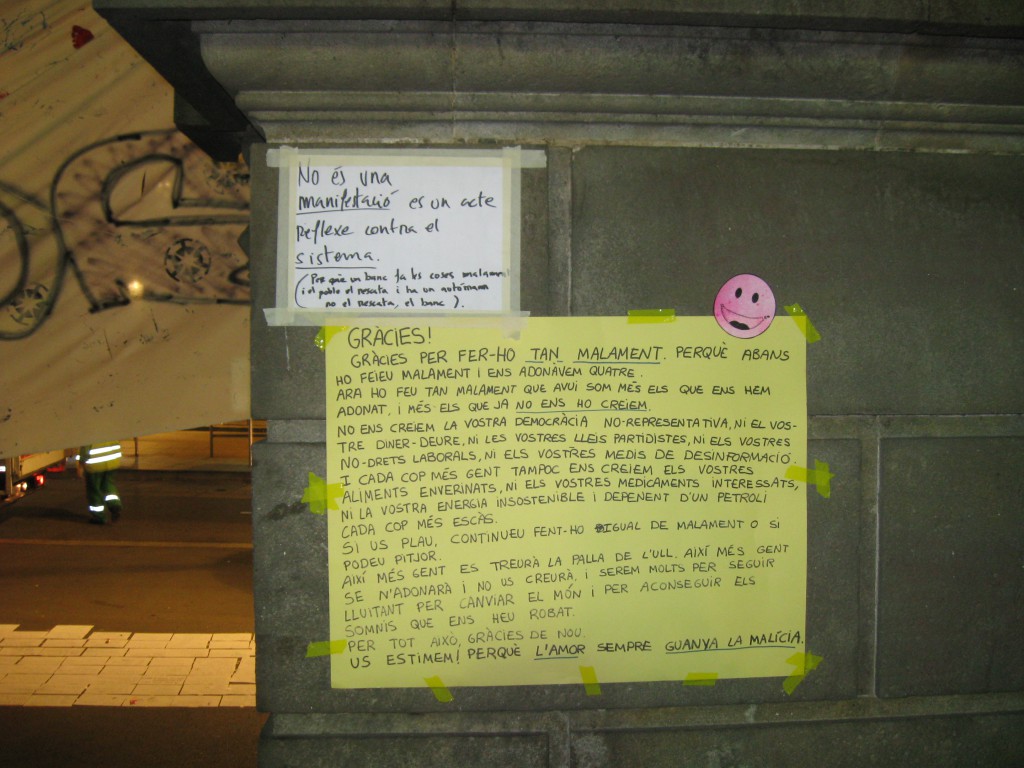 No és una
manifestació és un acte
reflexe contra el
sistema.
(Per què un banc fa les coses malament
i el poble el rescata i ha un autònom
no el rescata, el banc).
GRÀCIES!
GRÀCIES PER FER-HO TAN MALAMENT. PERQUÈ ABANS
HO FEIEU MALAMENT I ENS ADONÀVEM QUATRE.
ARA HO FEU TAN MALAMENT QUE AVUI SOM MÉS ELS QUE ENS HEM
ADONAT, I MÉS ELS QUE JA NO ENS HO CREIEM.
NO ENS CREIEM LA VOSTRA DEMOCRÀCIA NO-REPRESENTATIVA, NI EL VOS-
TRE DINER-DEURE, NI LES VOSTRES LLEIS PARTIDISTES, NI ELS VOSTRES
NO-DRETS LABORALS, NI ELS VOSTRES MEDIS DE DESINFORMACIÓ.
I CADA COP MÉS GENT TAMPOC ENS CREIEM ELS VOSTRES
ALIMENTS ENVERINATS, NI ELS VOSTRES MEDICAMENTS INTERESSATS,
NI LA VOSTRA ENERGIA INSOSTENIBLE I DEPENENT D'UN PETROLI
CADA COP MÉS ESCÀS.
SI US PLAU, CONTINUEU FENT-HO IGUAL DE MALAMENT O SI
PODEU PITJOR.
AIXÍ MÉS GENT ES TREURÀ LA PALLA DE L'ULL. AIXÍ MÉS GENT
SE N'ADONARÀ I NO US CREURÀ, I SEREM MOLTS PER SEGUIR
LLUITANT PER CANVIAR EL MÓN I PER ACONSEGUIR ELS
SOMNIS QUE ENS HEU ROBAT.
PER TOT AIXÒ, GRÀCIES DE NOU.
US ESTIMEM! PERQUÈ L'AMOR SEMPRE GUANYA LA MALÍCIA.